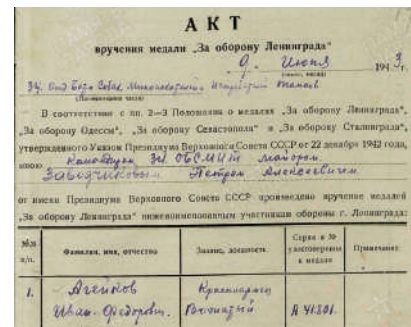 АКТ
вручения медали „За оборону Ленинграда“
9. Июня 1943 г.
(число, месяц)
34. Отд Бат. Собак Миноискателей Истребит. Танков
(Наименование части)
В соответствие с пп. 2—3 Положения о медалях „За оборону Ленинграда“,
„За оборону Одессы“, „За оборону Севастополя“ и „За оборону Сталинграда“,
утвержденного Указом Президиума Верховного Совета СССР от 22 декабря 1942 года,
мною Командиром 34 ОБСМИТ майором
Заводчиковым Петром Алексеевичем
от имени Президиума Верховного Совета СССР произведено вручение медалей
„За оборону Ленинграда“ нижепоименованным участникам обороны г. Ленинграда:
№№ п/п. Фамилия, имя, отчество Звание, должность Серия и № удостоверения к медали Примечание
1. Агейков Красноармеец
Иван Федорович. Вожатый А 41801.